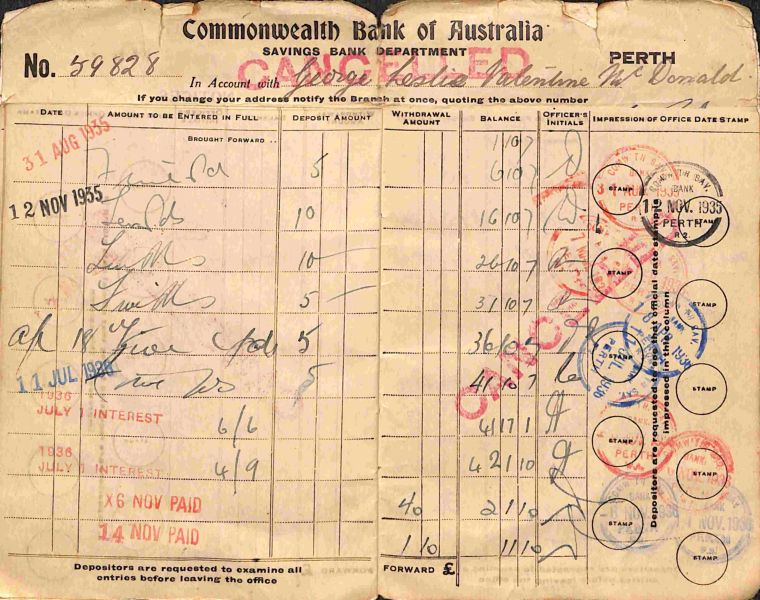 Commonwealth Bank of Australia
SAVINGS BANK DEPARTMENT
PERTH
CANCELLED
No. 59828 In Account with George Leslie Valentine McDonald
If you change your address notify the Branch at once, quoting the above number
DATE AMOUNT TO BE ENTERED IN FULL DEPOSIT AMOUNT WITHDRAWAL AMOUNT BALANCE OFFICER'S INITIALS IMPRESSION OF OFFICE DATE STAMP
BROUGHT FORWARD .. 1 10 7
31 AUG 1935 5 6 10 7
12 NOV 1935 Ten Pds 10 16 10 7
10 26 10 7
5 31 10 7
Ap 18 Five Pds 5 36 10 7
11 JUL 1936 5 41 10 7
1936
JULY 1 INTEREST 6/6 41 17 1
1936
JULY 1 INTEREST 4/9 42 1 10
X6 NOV PAID 40 2 1 10
14 NOV PAID 1 10 1 1 10
Depositors are requested to examine all
entries before leaving the office
FORWARD £
CANCELLED
Depositors are requested to see that official date stamp is
impressed in this column
STAMP
STAMP
STAMP
STAMP
STAMP
STAMP
STAMP
STAMP
STAMP
C'WLTH SAV.
BANK
12 NOV. 1935
PERTH
R 2.